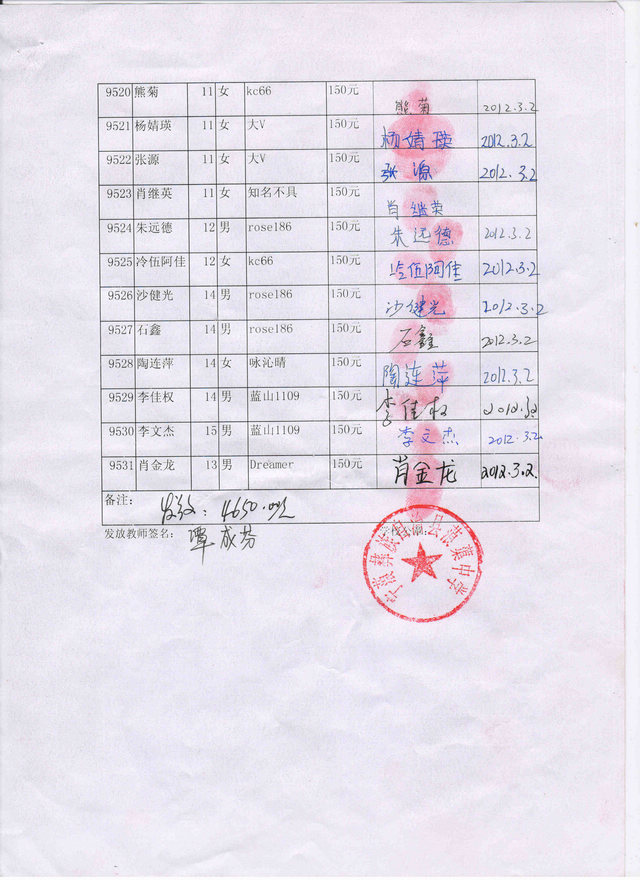 9520 熊菊 11 女 kc66 150元 熊菊 2012.3.2
9521 杨婧瑛 11 女 大V 150元 杨婧瑛 2012.3.2
9522 张源 11 女 大V 150元 张源 2012.3.2
9523 肖继英 11 女 知名不具 150元 肖继英
9524 朱远德 12 男 rose186 150元 朱远德 2012.3.2
9525 冷伍阿佳 12 女 kc66 150元 冷伍阿佳 2012.3.2
9526 沙健光 14 男 rose186 150元 沙健光 2012.3.2
9527 石鑫 14 男 rose186 150元 石鑫 2012.3.2
9528 陶连萍 14 女 咏沁晴 150元 陶连萍 2012.3.2
9529 李佳权 14 男 蓝山1109 150元 李佳权 2012.3.2
9530 李文杰 15 男 蓝山1109 150元 李文杰 2012.3.2
9531 肖金龙 13 男 Dreamer 150元 肖金龙 2012.3.2.
备注:
发放: 4650.
发放教师签名: 覃成芬
宁蒗彝族自治县蒗蕖中学